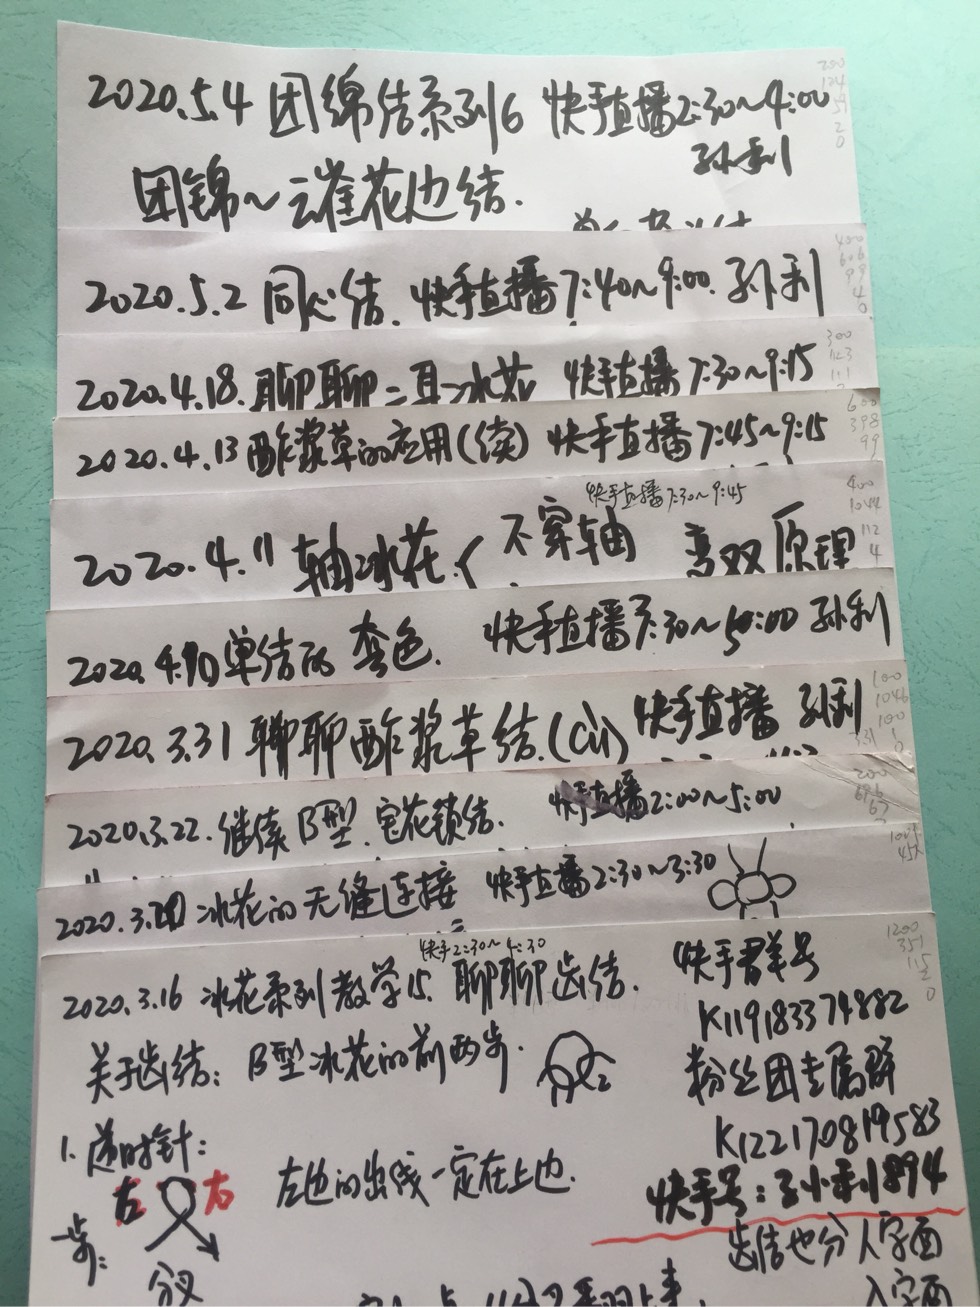 2020.5.4 团绵结系列6 快手直播2:30~4:00
孙利
团锦~云雀花边结.
2020.5.2 同心结. 快手直播7:40~9:00. 孙利
2020.4.18. 聊聊二耳冰花 快手直播7:30~9:15
2020.4.13 酢浆草的应用(续) 快手直播7:45~9:15
快手直播7:30~9:45
2020.4.11 轴冰花.< 不穿轴 离双原理
单结的套色. 快手直播 孙利
2020.3.31 聊聊酢浆草结. 快手直播 孙利
2020.3.22. 继续B型.宝花锁结. 快手直播2:00~5:00
冰花的无缝连接 快手直播2:30~3:30
快手2:30~4:30
2020.3.16 冰花系列教学15. 聊聊齿结. 快手群号
K119183374882
关于齿结: B型冰花的前两步. 粉丝团专属群
K122170819583
1. 逆时针:
左 右
左边的出线一定在上边.
快手号:孙利1894
一步:
分叉
齿结也分人字面
入字面